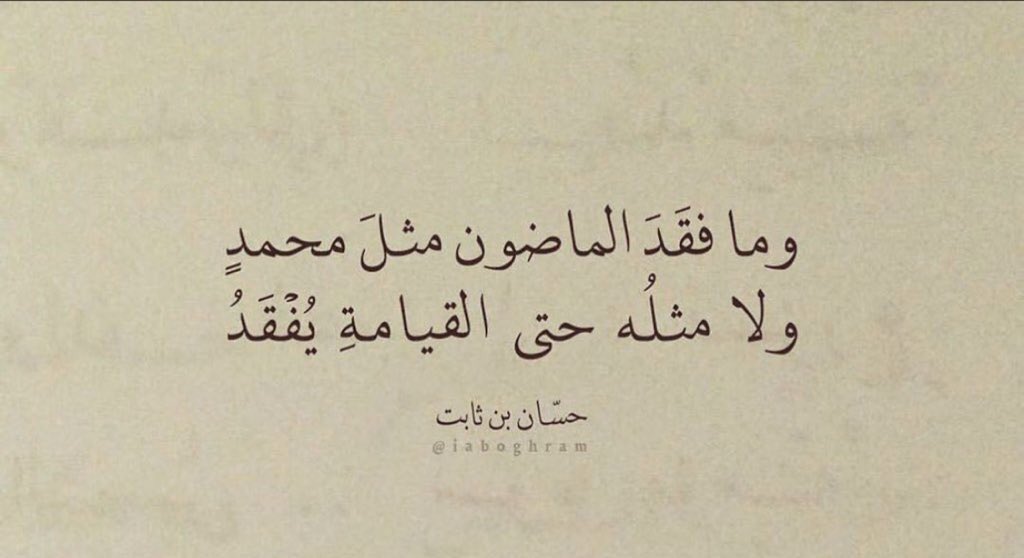 وما فقَدَ الماضون مثلَ محمدٍ
ولا مثلُه حتى القيامةِ يُفْقَدُ
حسّان بن ثابت
@iaboghram